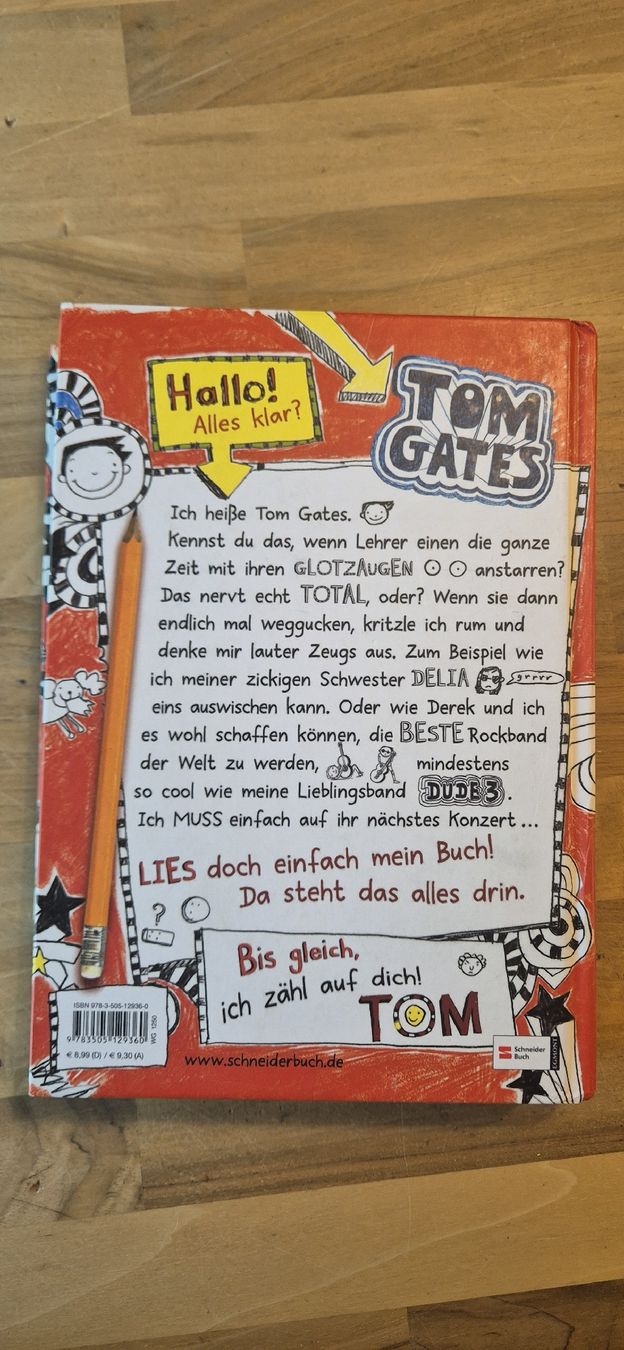 Hallo!
Alles klar?
TOM
GATES
Ich heiße Tom Gates.
Kennst du das, wenn Lehrer einen die ganze
Zeit mit ihren GLOTZAUGEN anstarren?
Das nervt echt TOTAL, oder? Wenn sie dann
endlich mal weggucken, kritzle ich rum und
denke mir lauter Zeugs aus. Zum Beispiel wie
ich meiner zickigen Schwester DELIA grrrr
eins auswischen kann. Oder wie Derek und ich
es wohl schaffen können, die BESTE Rockband
der Welt zu werden, mindestens
so cool wie meine Lieblingsband DUDE3.
Ich MUSS einfach auf ihr nächstes Konzert...
LIES doch einfach mein Buch!
Da steht das alles drin.
?
Bis gleich,
ich zähl auf dich!
TOM
ISBN 978-3-505-12936-0
9 783505 129360
WG 1250
€ 8,99 (D) / € 9,30 (A)
www.schneiderbuch.de
Schneider
Buch
EGMONT